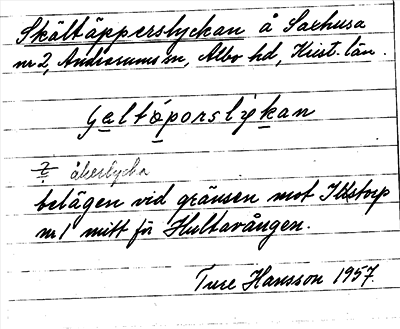 Skältäpperslyckan å Saxhusa
nr 2, Andrarums sn, Albo hd, Krist. län.
åkerlycka
belägen vid gränsen mot Illstorp
nr 1 mitt för Hultavången.
Ture Hansson 1957.